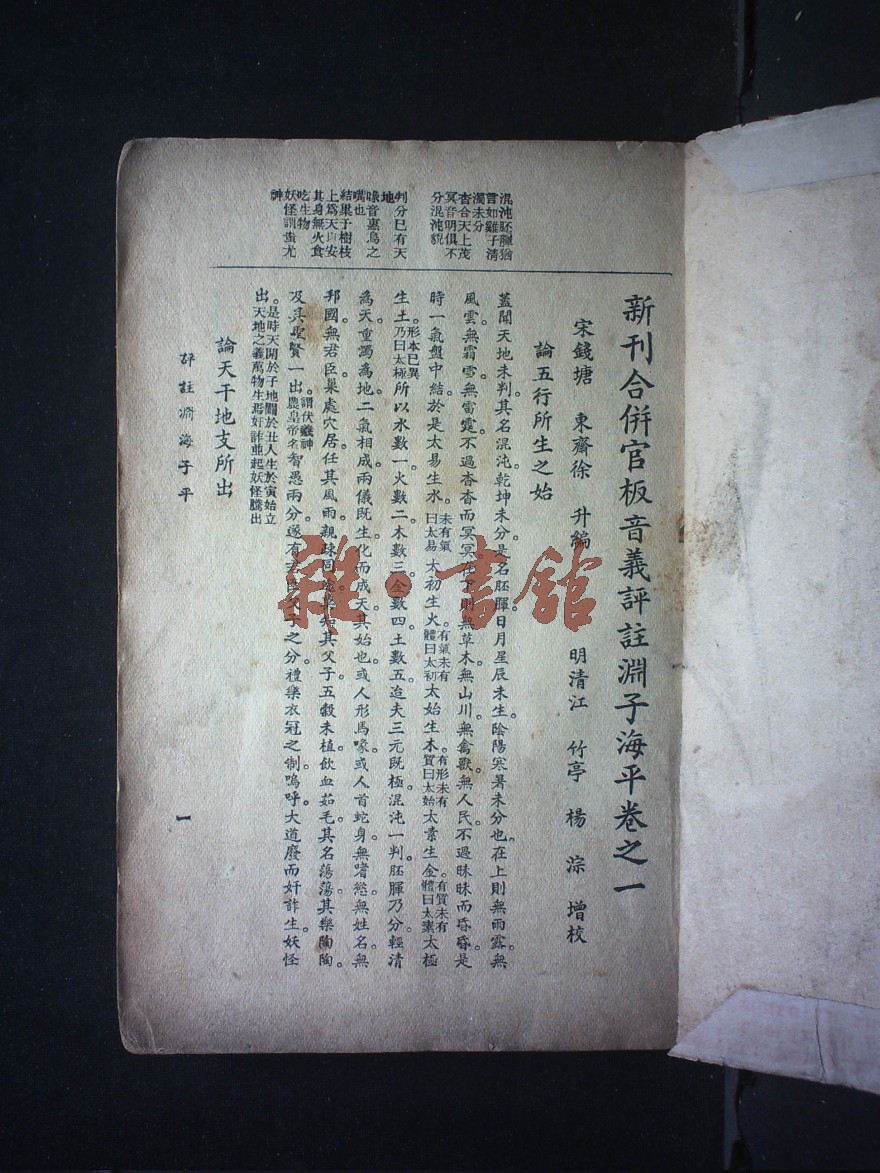 新刊合併官板音義評註淵子海平卷之一
宋錢塘 東齋徐 升編 明清江 竹亭 楊 淙 增校
論五行所生之始
蓋聞天地未判其名混沌乾坤未分是名胚腪日月星辰未生陰陽寒暑未分也在上則無雨露無
風雲無霜雪無雷霆不過杳杳而冥冥在下則無草木無山川無禽獸無人民不過昧昧而昏昏是
時一氣盤中結於是太易生水。未有氣曰太易太初生火有氣未有體曰太初太始生木有形未有質曰太始太素生金有質未有體曰太素太極
生土。形本已異乃曰太極所以水數一火數二木數三金數四土數五迨夫三元既極混沌一判胚腪乃分輕清
為天重濁為地二氣相成兩儀既生化而成天其始也或人形馬喙或人首蛇身無嗜慾無姓名無
邦國無君臣巢處穴居任其風雨親疎同知其父子五穀未植飲血茹毛其名蕩蕩其樂陶陶。
及其聖賢一出。謂伏羲神農皇帝名智愚兩分遂有父子之分禮樂衣冠之制嗚呼大道廢而奸詐生妖怪
出。是時天開於子地闢於丑人生於寅始立天地之義萬物生焉奸詐並起妖怪騰出
論天干地支所出
評註淵海子平
一
混沌胚腪猶
言如雞子清
濁未分
杳合天上茂
冥音明俱不
分混沌貌
判分已有天
地
喙音惠鳥之
嘴也
結巢子樹枝
上為天以安
其身無火食
吃生物
妖怪謂蚩尤
神
雜·書館